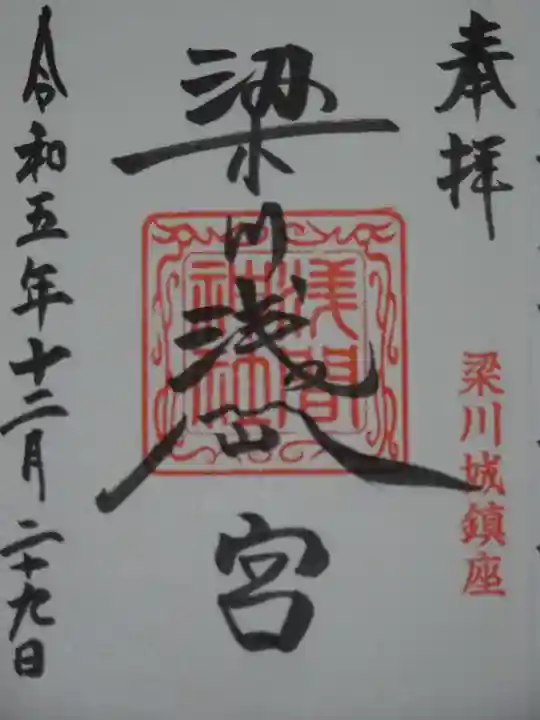 奉拝
梁川城鎮座
梁川浅間宮
浅間神社
令和五年十二月二十九日